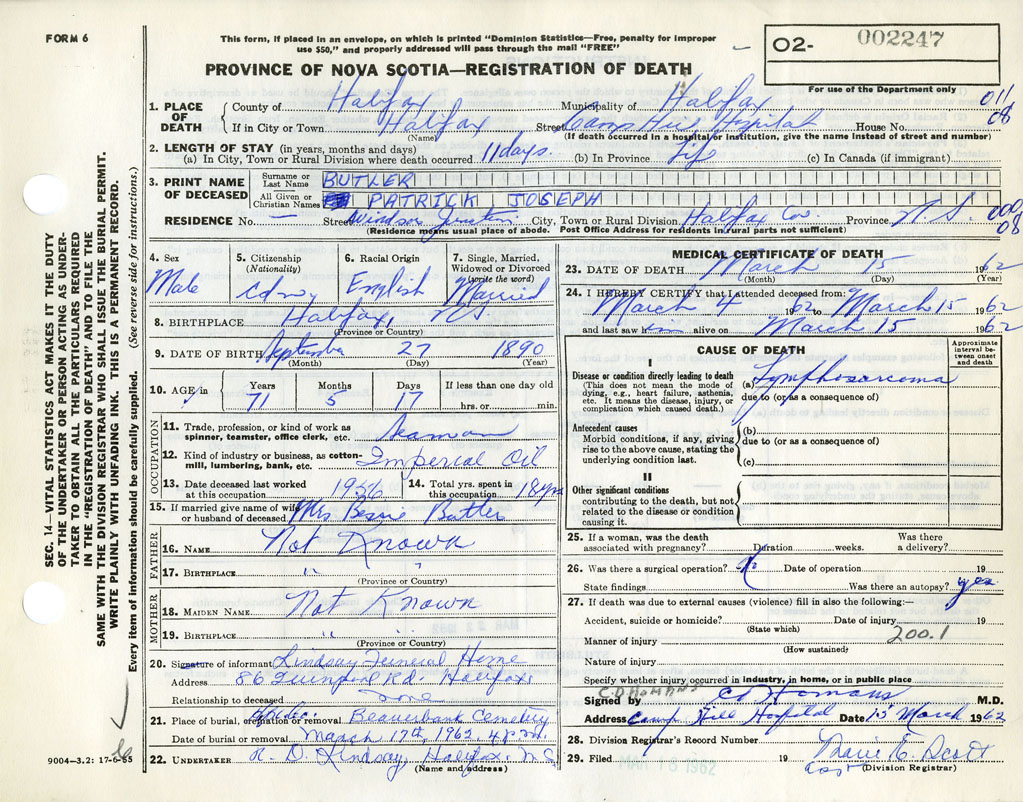 FORM 6
This form, if placed in an envelope, on which is printed "Dominion Statistics—Free, penalty for improper
use $50," and properly addressed will pass through the mail "FREE"
O2- 002247
PROVINCE OF NOVA SCOTIA—REGISTRATION OF DEATH
For use of the Department only
011
08
1. PLACE OF DEATH
County of Halifax Municipality of Halifax
If in City or Town Halifax Street Camp Hill Hospital House No.
(Name) (If death occurred in a hospital or institution, give the name instead of street and number)
2. LENGTH OF STAY (in years, months and days)
(a) In City, Town or Rural Division where death occurred 11 days. (b) In Province Life (c) In Canada (if immigrant)
3. PRINT NAME OF DECEASED
Surname or Last Name BUTLER
All Given or Christian Names PATRICK JOSEPH
RESIDENCE No. — Street Windsor Junction City, Town or Rural Division Halifax Co. Province N.S.
(Residence means usual place of abode. Post Office Address for residents in rural parts not sufficient)
08
4. Sex
Male
5. Citizenship
(Nationality)
Cdn
6. Racial Origin
English
7. Single, Married,
Widowed or Divorced
(write the word)
Married
8. BIRTHPLACE Halifax, NS
(Province or Country)
9. DATE OF BIRTH September 27 1890
(Month) (Day) (Year)
10. AGE in Years Months Days If less than one day old
71 5 17 hrs. or min.
OCCUPATION
11. Trade, profession, or kind of work as
spinner, teamster, office clerk, etc. Seaman
12. Kind of industry or business, as cotton-
mill, lumbering, bank, etc. Imperial Oil
13. Date deceased last worked
at this occupation 1956
14. Total yrs. spent in
this occupation 18 yrs
15. If married give name of wife
or husband of deceased Mrs Bessie Butler
FATHER
16. NAME Not Known
17. BIRTHPLACE " "
(Province or Country)
MOTHER
18. MAIDEN NAME Not Known
19. BIRTHPLACE " "
(Province or Country)
20. Signature of informant Lindsay Funeral Home
Address 86 Quinpool Rd. Halifax
Relationship to deceased none
21. Place of burial, cremation or removal Beaverbank Cemetery
Date of burial or removal March 17th, 1962, 4 p.m.
22. UNDERTAKER Lindsay, Halifax, N.S.
(Name and address)
9004—3.2: 17-6-55
MEDICAL CERTIFICATE OF DEATH
23. DATE OF DEATH March 15 1962
(Month) (Day) (Year)
24. I HEREBY CERTIFY that I attended deceased from:
March 4 1962 to March 15 1962
and last saw him alive on March 15 1962
CAUSE OF DEATH
Approximate
interval be-
tween onset
and death
I
Disease or condition directly leading to death
(This does not mean the mode of
dying, e.g., heart failure, asthenia,
etc. It means the disease, injury, or
complication which caused death.)
(a) Lymphosarcoma
due to (or as a consequence of)
Antecedent causes
Morbid conditions, if any, giving
rise to the above cause, stating the
underlying condition last.
(b)
due to (or as a consequence of)
(c)
II
Other significant conditions
contributing to the death, but not
related to the disease or condition
causing it.
25. If a woman, was the death
associated with pregnancy? Duration weeks. Was there
a delivery?
26. Was there a surgical operation? Date of operation 19
State findings Was there an autopsy? yes
27. If death was due to external causes (violence) fill in also the following:—
Accident, suicide or homicide? Date of injury 19
(State which)
200.1
Manner of injury
(How sustained)
Nature of injury
Specify whether injury occurred in industry, in home, or in public place
C.D. HOMANS
Signed by CD Homans M.D.
Address Camp Hill Hospital Date 15 March 1962
28. Division Registrar's Record Number
29. Filed MAR 16 1962 19 Marie E. Scott
(Division Registrar)
SEC. 14—VITAL STATISTICS ACT MAKES IT THE DUTY
OF THE UNDERTAKER OR PERSON ACTING AS UNDER-
TAKER TO OBTAIN ALL THE PARTICULARS REQUIRED
IN THE "REGISTRATION OF DEATH" AND TO FILE THE
SAME WITH THE DIVISION REGISTRAR WHO SHALL ISSUE THE BURIAL PERMIT.
WRITE PLAINLY WITH UNFADING INK. THIS IS A PERMANENT RECORD.
Every item of information should be carefully supplied. (See reverse side for instructions.)